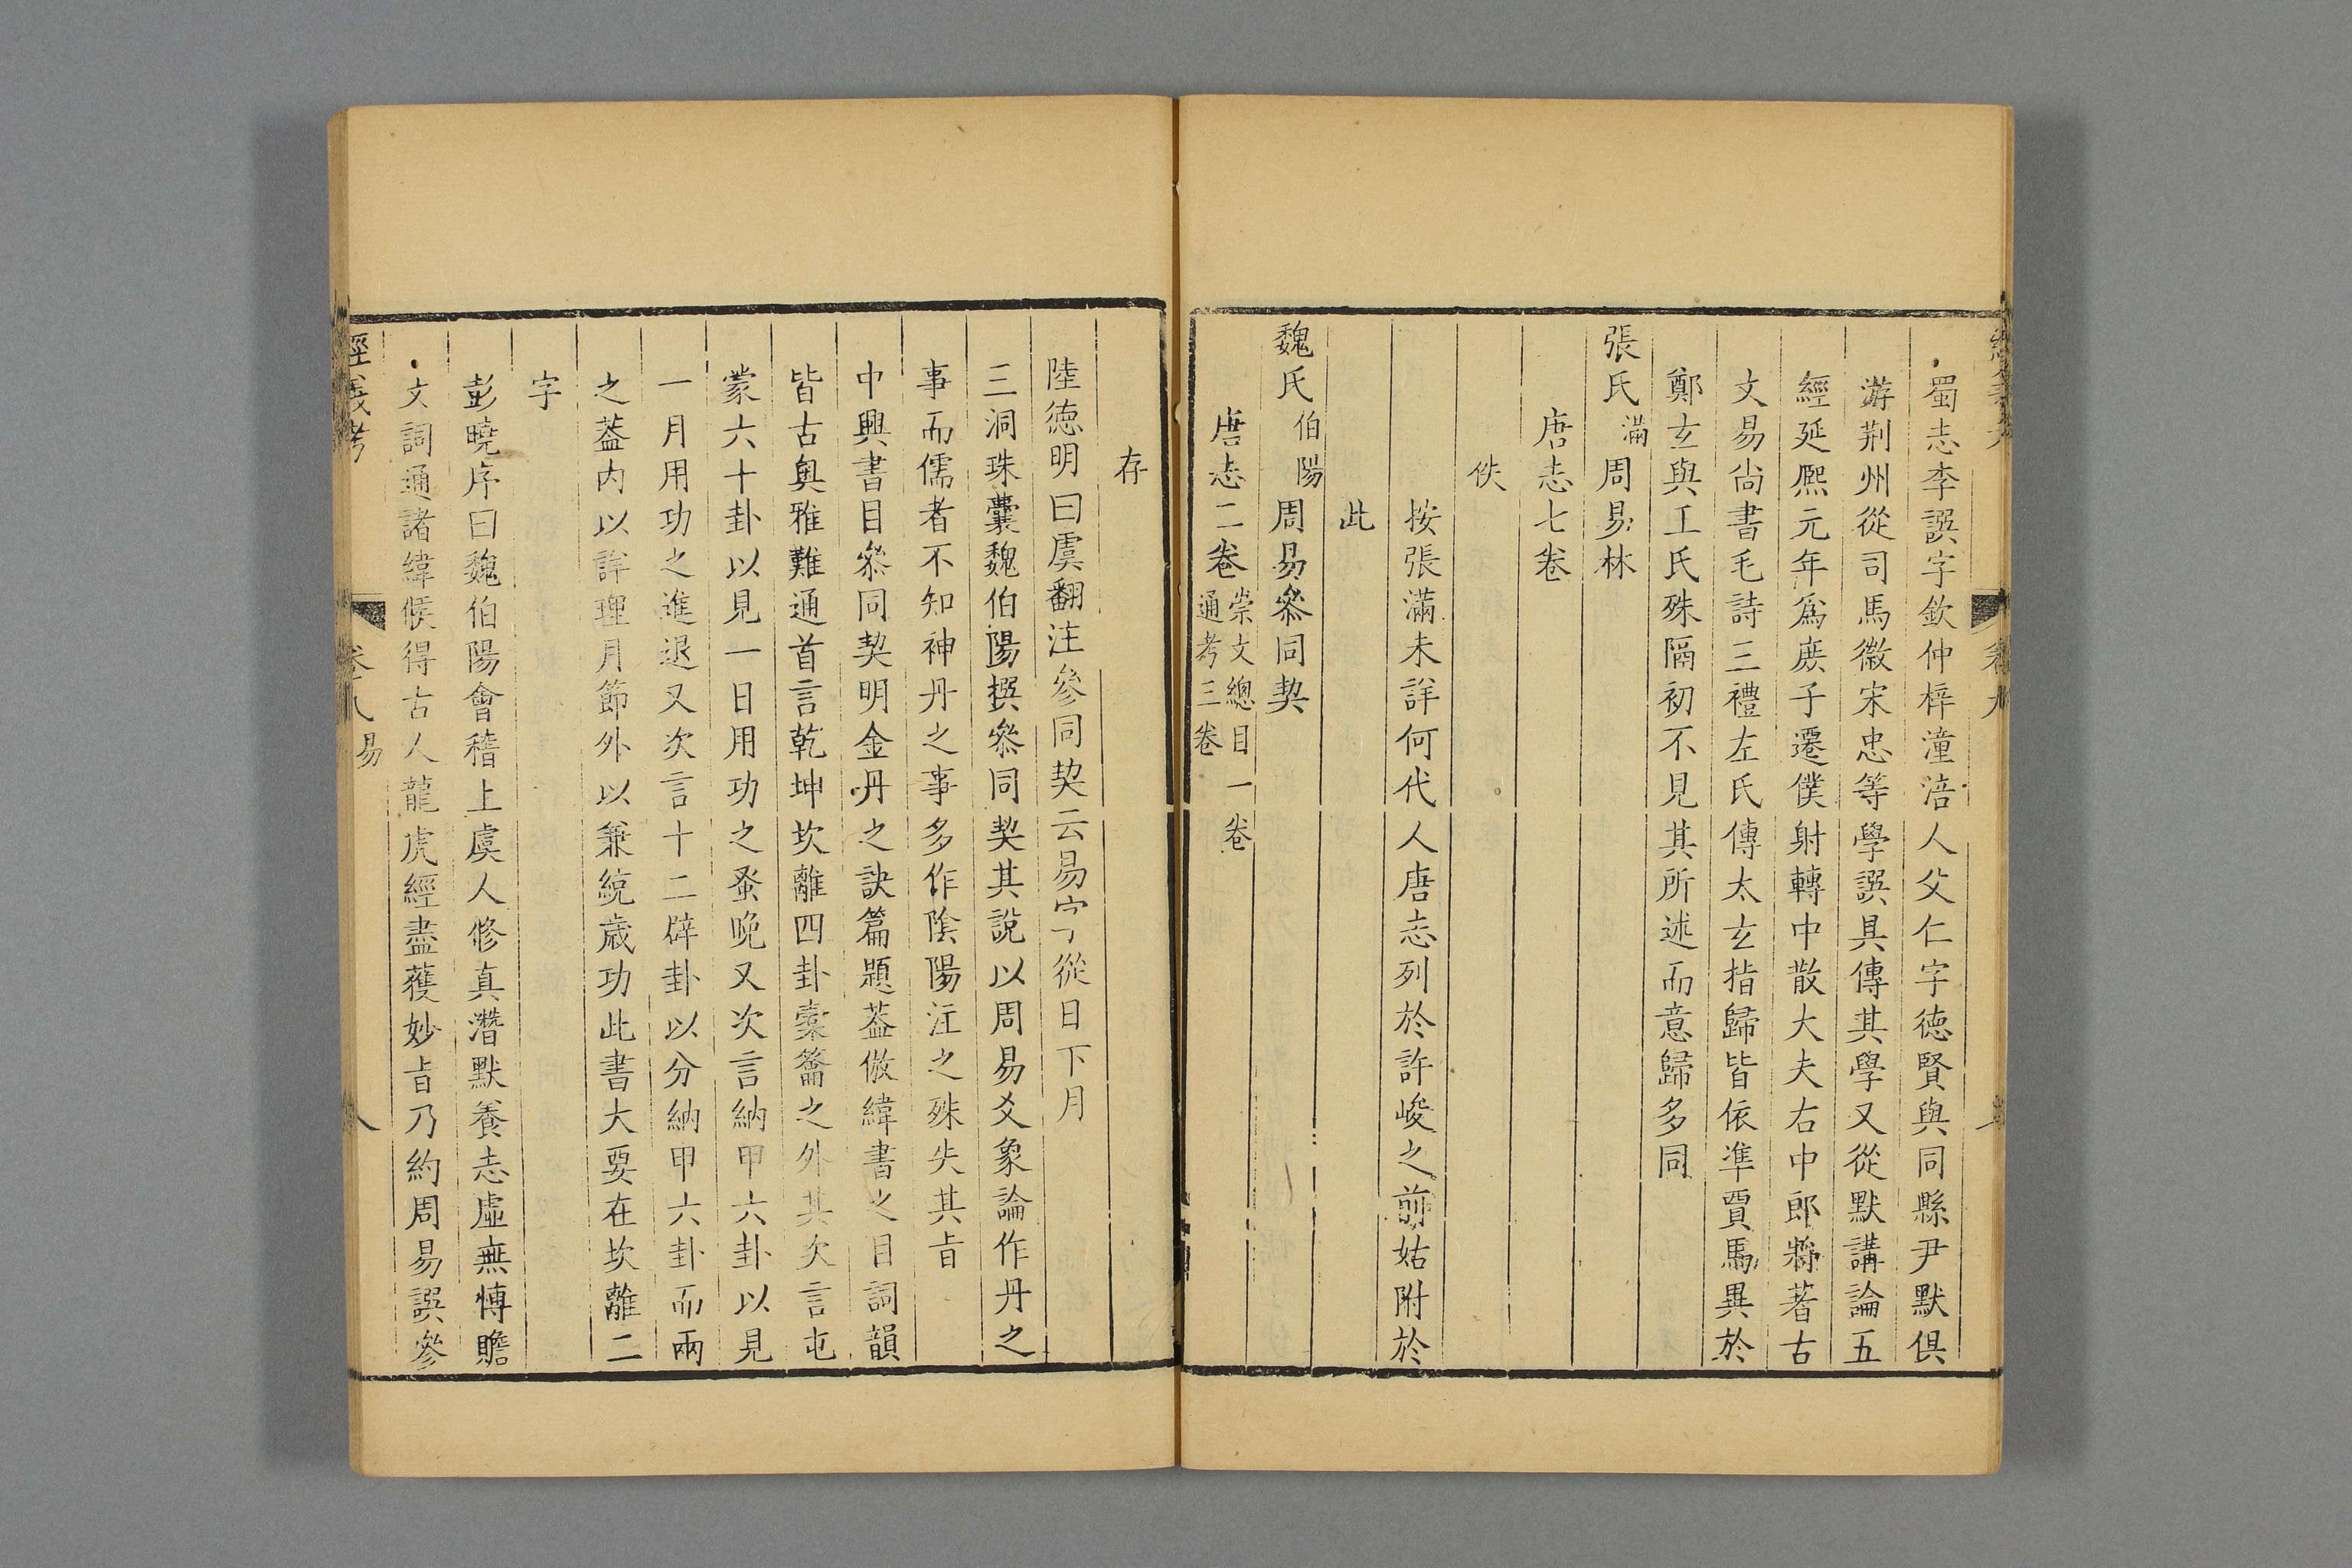 蜀志李譔字欽仲梓潼涪人父仁字德賢與同縣尹默俱
游荆州從司馬徽宋忠等學譔具傳其學又從默講論五
經延熈元年爲庶子遷僕射轉中散大夫右中郎將著古
文易尚書毛詩三禮左氏傳太玄指歸皆依準賈馬異於
鄭玄與王氏殊隔初不見其所述而意歸多同
張氏滿周易林
唐志七卷
佚
按張滿未詳何代人唐志列於許峻之前姑附於
此
魏氏伯陽周易叅同契
唐志二卷崇文總目一卷
通考三卷
存
陸德明曰虞翻注參同契云易字從日下月
三洞珠囊魏伯陽撰叅同契其說以周易爻象論作丹之
事而儒者不知神丹之事多作陰陽注之殊失其㫖
中興書目叅同契明金丹之訣篇題葢倣緯書之目詞韻
皆古奥雅難通首言乾坤坎離四卦橐籥之外其次言屯
蒙六十卦以見一日用功之蚤晚又次言納甲六卦以見
一月用功之進退又次言十二辟卦以分納甲六卦而兩
之葢内以詳理月節外以兼統歲功此書大要在坎離二
字
彭曉序曰魏伯陽會稽上虞人修真潛默養志虛無博贍
文詞通諸緯候得古人龍虎經盡獲妙㫖乃約周易譔參
經義考
卷八 易
八